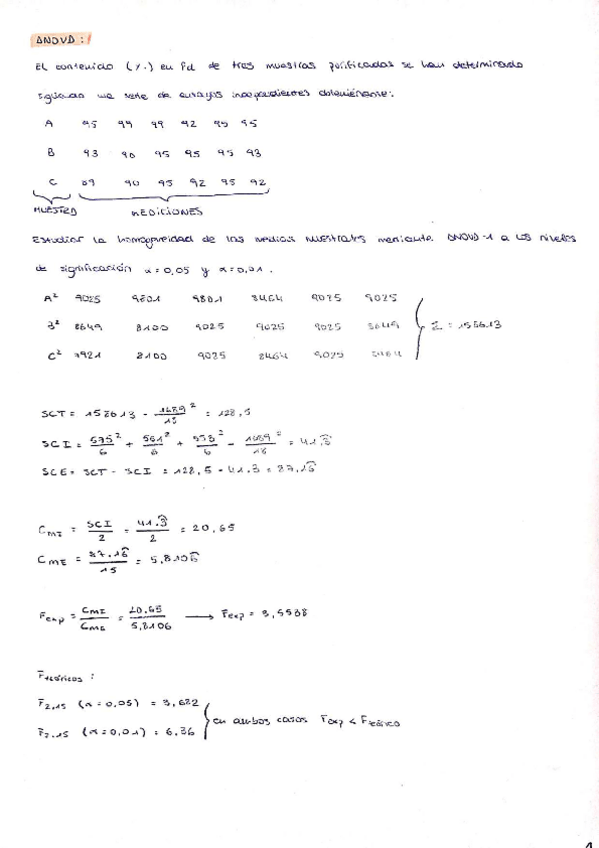 ANOVA:
El contenido (%) en Pd de tres muestras purificadas se han determinado
siguiendo una serie de ensayos independientes obteniéndose:
A 95 99 99 92 95 95
B 93 90 95 95 95 93
C 89 90 95 92 95 92
MUESTRA MEDICIONES
Estudiar la homogeneidad de las medias muestrales mediante ANOVA-1 a los niveles
de significación α=0,05 y α=0,01.
A² 9025 9801 9801 8464 9025 9025
B² 8649 8100 9025 9025 9025 8649 Σ = 158613
C² 7921 8100 9025 8464 9025 8464
SCT = 158613 - 1689²/18 = 128,5
SCI = 575²/6 + 561²/6 + 553²/6 - 1689²/18 = 41.3
SCE = SCT - SCI = 128,5 - 41.3 = 87,16
CMI = SCI/2 = 41.3/2 = 20,65
CME = 87.16/15 = 5,8106
Fexp = CMI/CME = 20,65/5,8106 → Fexp = 3,5538
Fteóricos:
F2,15 (α=0,05) = 3,682
F2,15 (α=0,01) = 6,36
en ambos casos Fexp < Fteórico